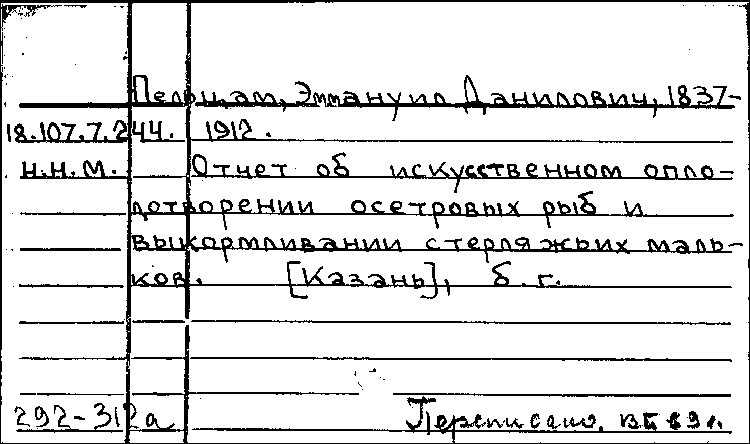 Пельцам, Эммануил Данилович, 1837-
18.107.7.244. 1912.
Н.Н.М. Отчет об искусственном опло-
дотворении осетровых рыб и
выкармливании стерляжьих маль-
ков. [Казань], б.г.
292-312а Переписано.